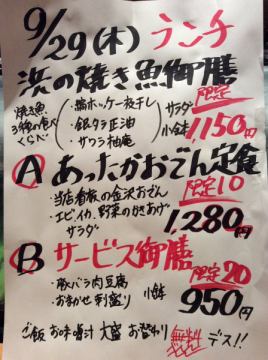 9/29(木) ランチ
浜の焼き魚御膳
限定
焼魚
3種の食べ
くらべ
・縞ホッケ一夜干し
・銀タラ正油
・サワラ柚庵
サラダ
小鉢
1,150円
Ⓐ あったかおでん定食
限定10
・当店看板の金沢おでん
・エビ、イカ、野菜のかきあげ
サラダ
1,280円
Ⓑ サービス御膳
限定20
・豚バラ肉豆腐
・おまかせ刺盛り
小鉢
950円
ご飯 お味噌汁 大盛 お替わり 無料デス!!